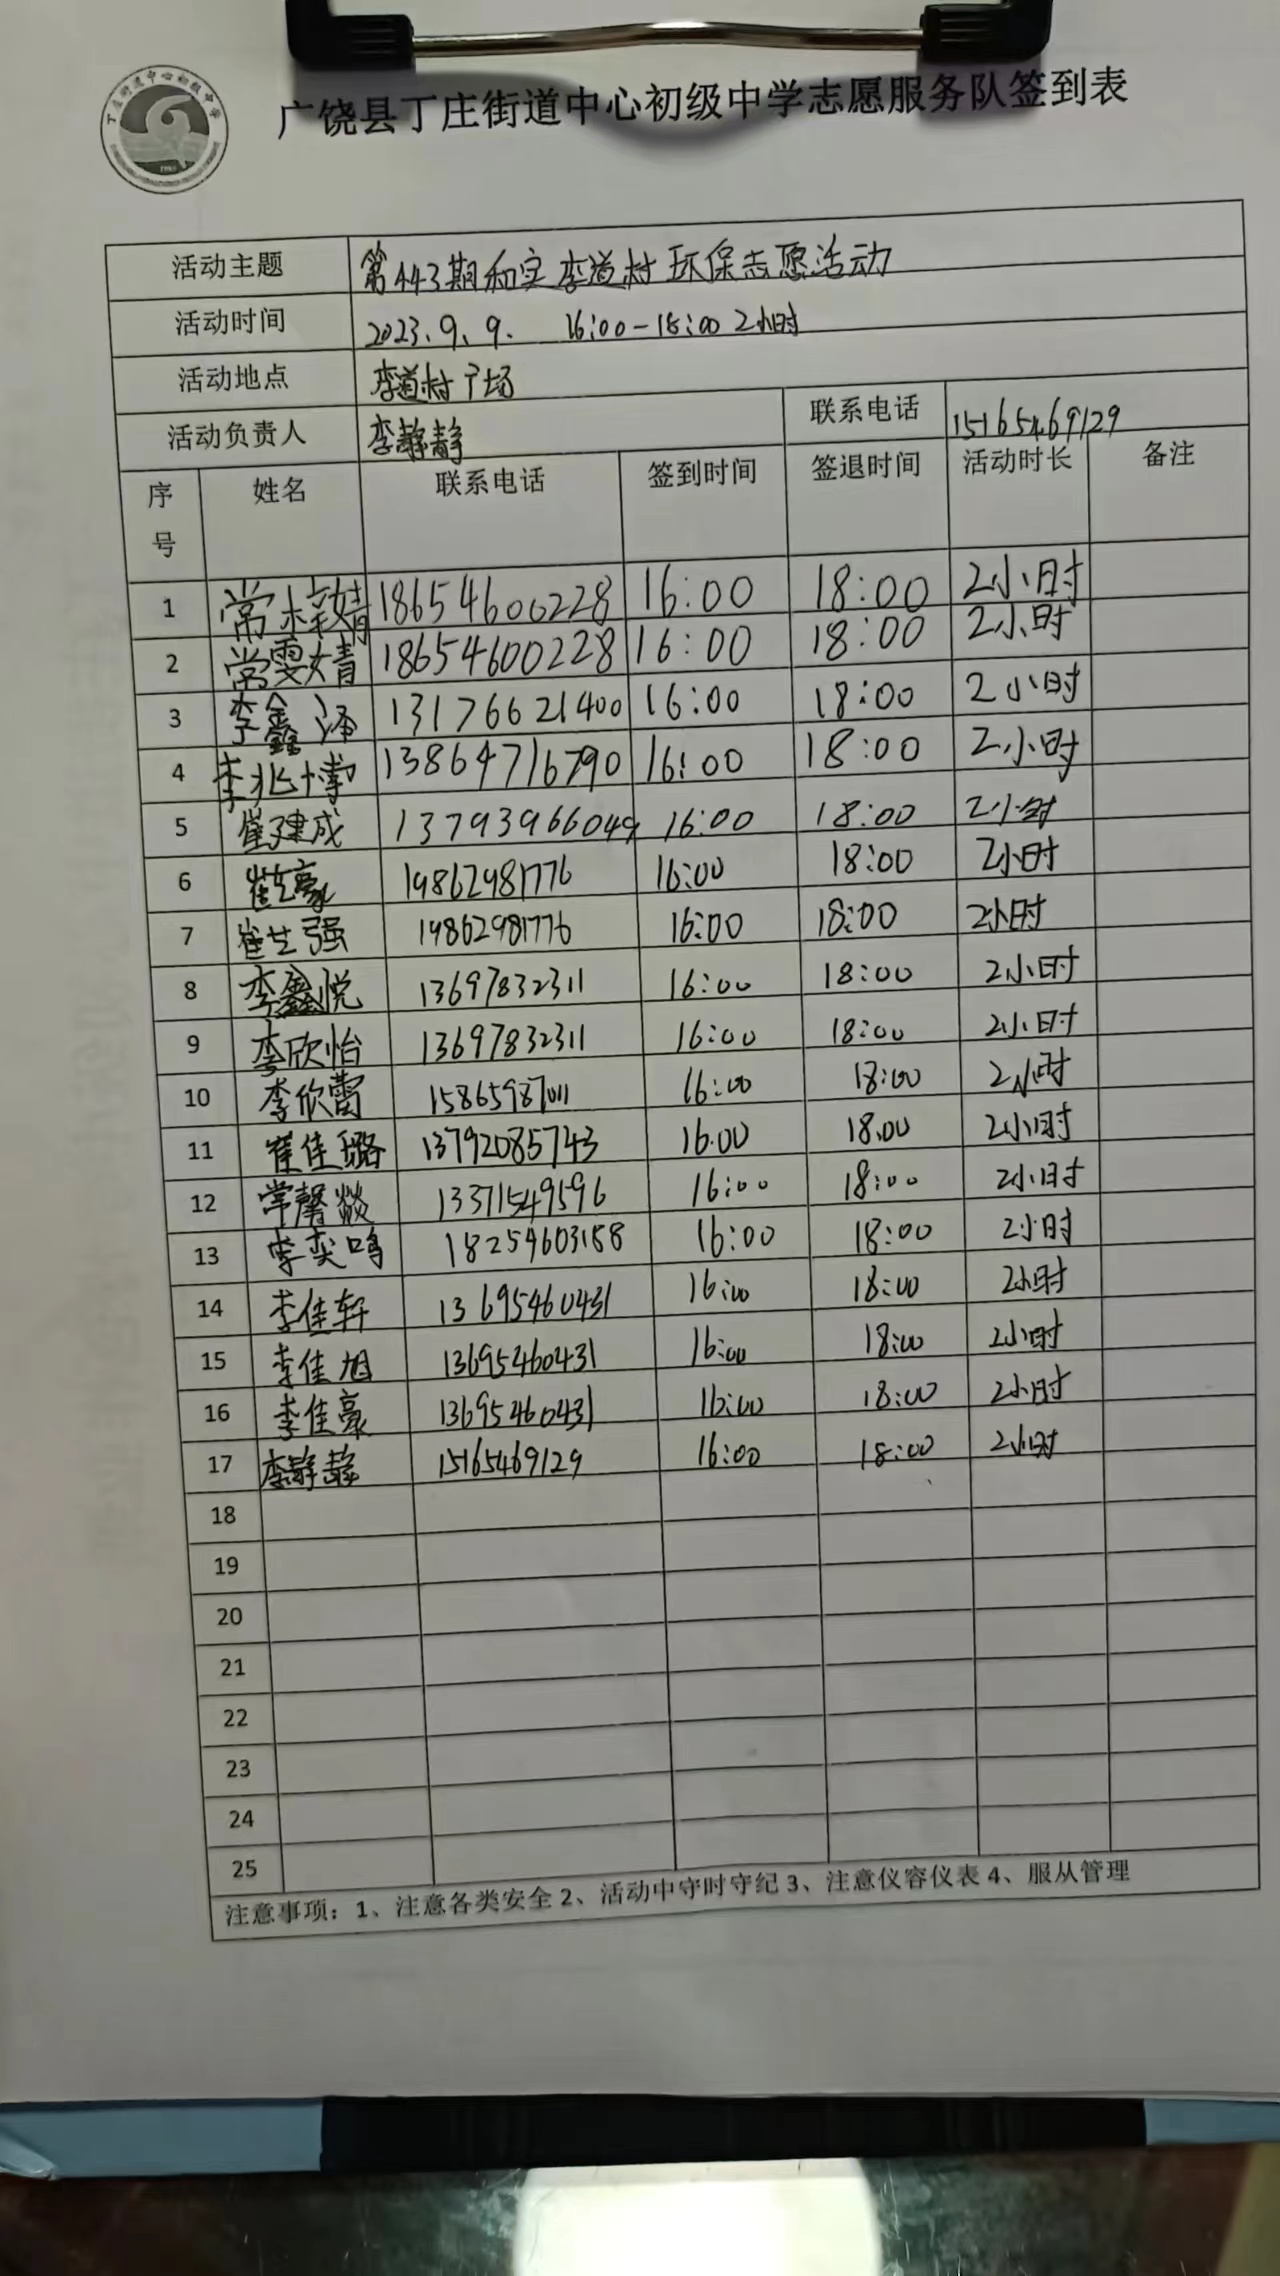 丁庄街道中心初级中学
广饶县丁庄街道中心初级中学志愿服务队签到表
活动主题 第443期和实李道村环保志愿活动
活动时间 2023.9.9. 16:00-18:00 2小时
活动地点 李道村广场
活动负责人 李静静 联系电话 15165469129
序号 姓名 联系电话 签到时间 签退时间 活动时长 备注
1 18654600228 16:00 18:00 2小时
2 常雯婧 18654600228 16:00 18:00 2小时
3 李鑫泽 13176621400 16:00 18:00 2小时
4 李兆博 13864716790 16:00 18:00 2小时
5 崔建成 13793966049 16:00 18:00 2小时
6 崔艺豪 19862981776 16:00 18:00 2小时
7 崔艺强 19862981776 16:00 18:00 2小时
8 李鑫悦 13697832311 16:00 18:00 2小时
9 李欣怡 13697832311 16:00 18:00 2小时
10 李欣蕾 15865987011 16:00 18:00 2小时
11 崔佳璐 13792085743 16.00 18.00 2小时
12 常馨燚 13371549596 16:00 18:00 2小时
13 李奕鸣 18254603158 16:00 18:00 2小时
14 李佳轩 13695460431 16:00 18:00 2小时
15 李佳旭 13695460431 16:00 18:00 2小时
16 李佳豪 13695460431 16:00 18:00 2小时
17 李静静 15165469129 16:00 18:00 2小时
18
19
20
21
22
23
24
25
注意事项：1、注意各类安全 2、活动中守时守纪 3、注意仪容仪表 4、服从管理